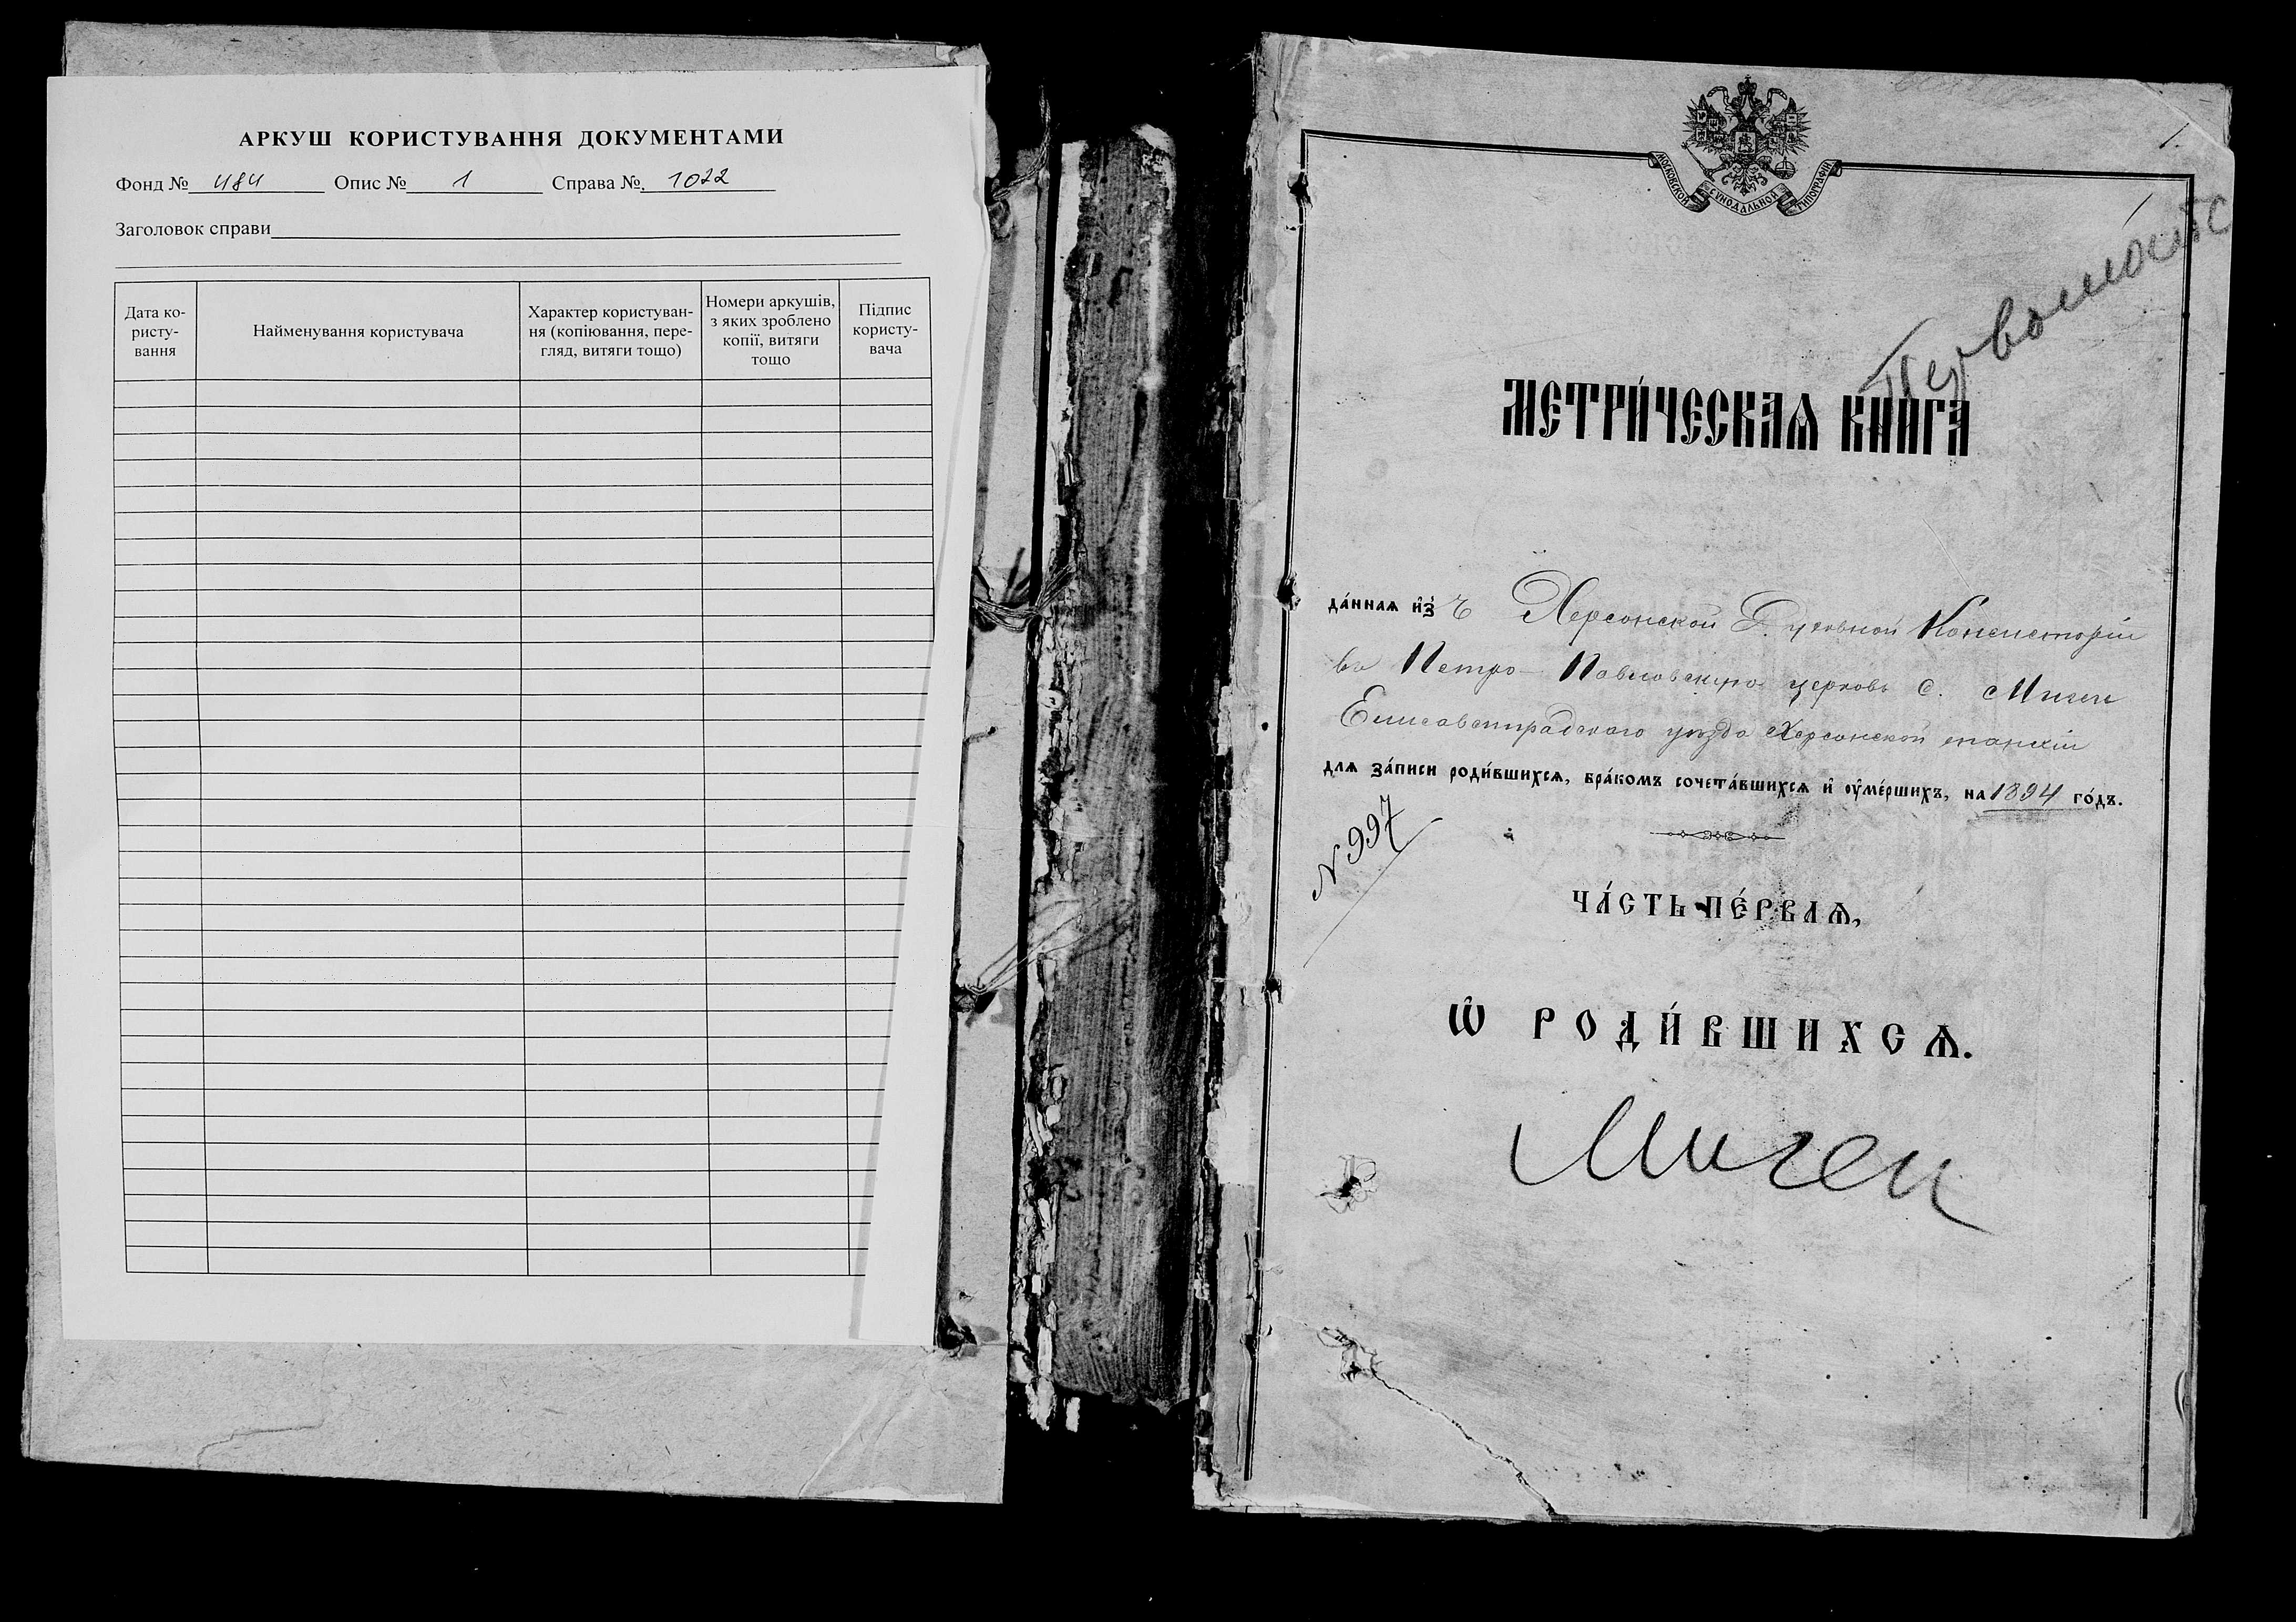 АРКУШ КОРИСТУВАННЯ ДОКУМЕНТАМИ
Фонд № 484 Опис № 1 Справа № 1022
Заголовок справи
Дата ко-
ристу-
вання
Найменування користувача
Характер користуван-
ня (копіювання, пере-
гляд, витяги тощо)
Номери аркушів,
з яких зроблено
копії, витяги
тощо
Підпис
користу-
вача
1.
МОСКОВСКОЙ СѴНОДАЛЬНОЙ ТИПОГРАФІИ
Первомайс
МЕТРИ́ЧЕСКАѦ КНИ́ГА
да́ннаѧ из ъ Херсонской Духовной Консисторіи
въ Петро-Павловскую церковь с. Мигеи
Елисаветградскаго уѣзда Херсонской епархіи
для за́писи роди́вшихсѧ, бра́комъ сочета́вшихсѧ и҆ оу҆ме́ршихъ, на 1894 го́дъ.
N 997
ЧА́СТЬ ПЕ́РВАѦ,
Ѡ҆ РОДИ́ВШИХСѦ.
Мигеи